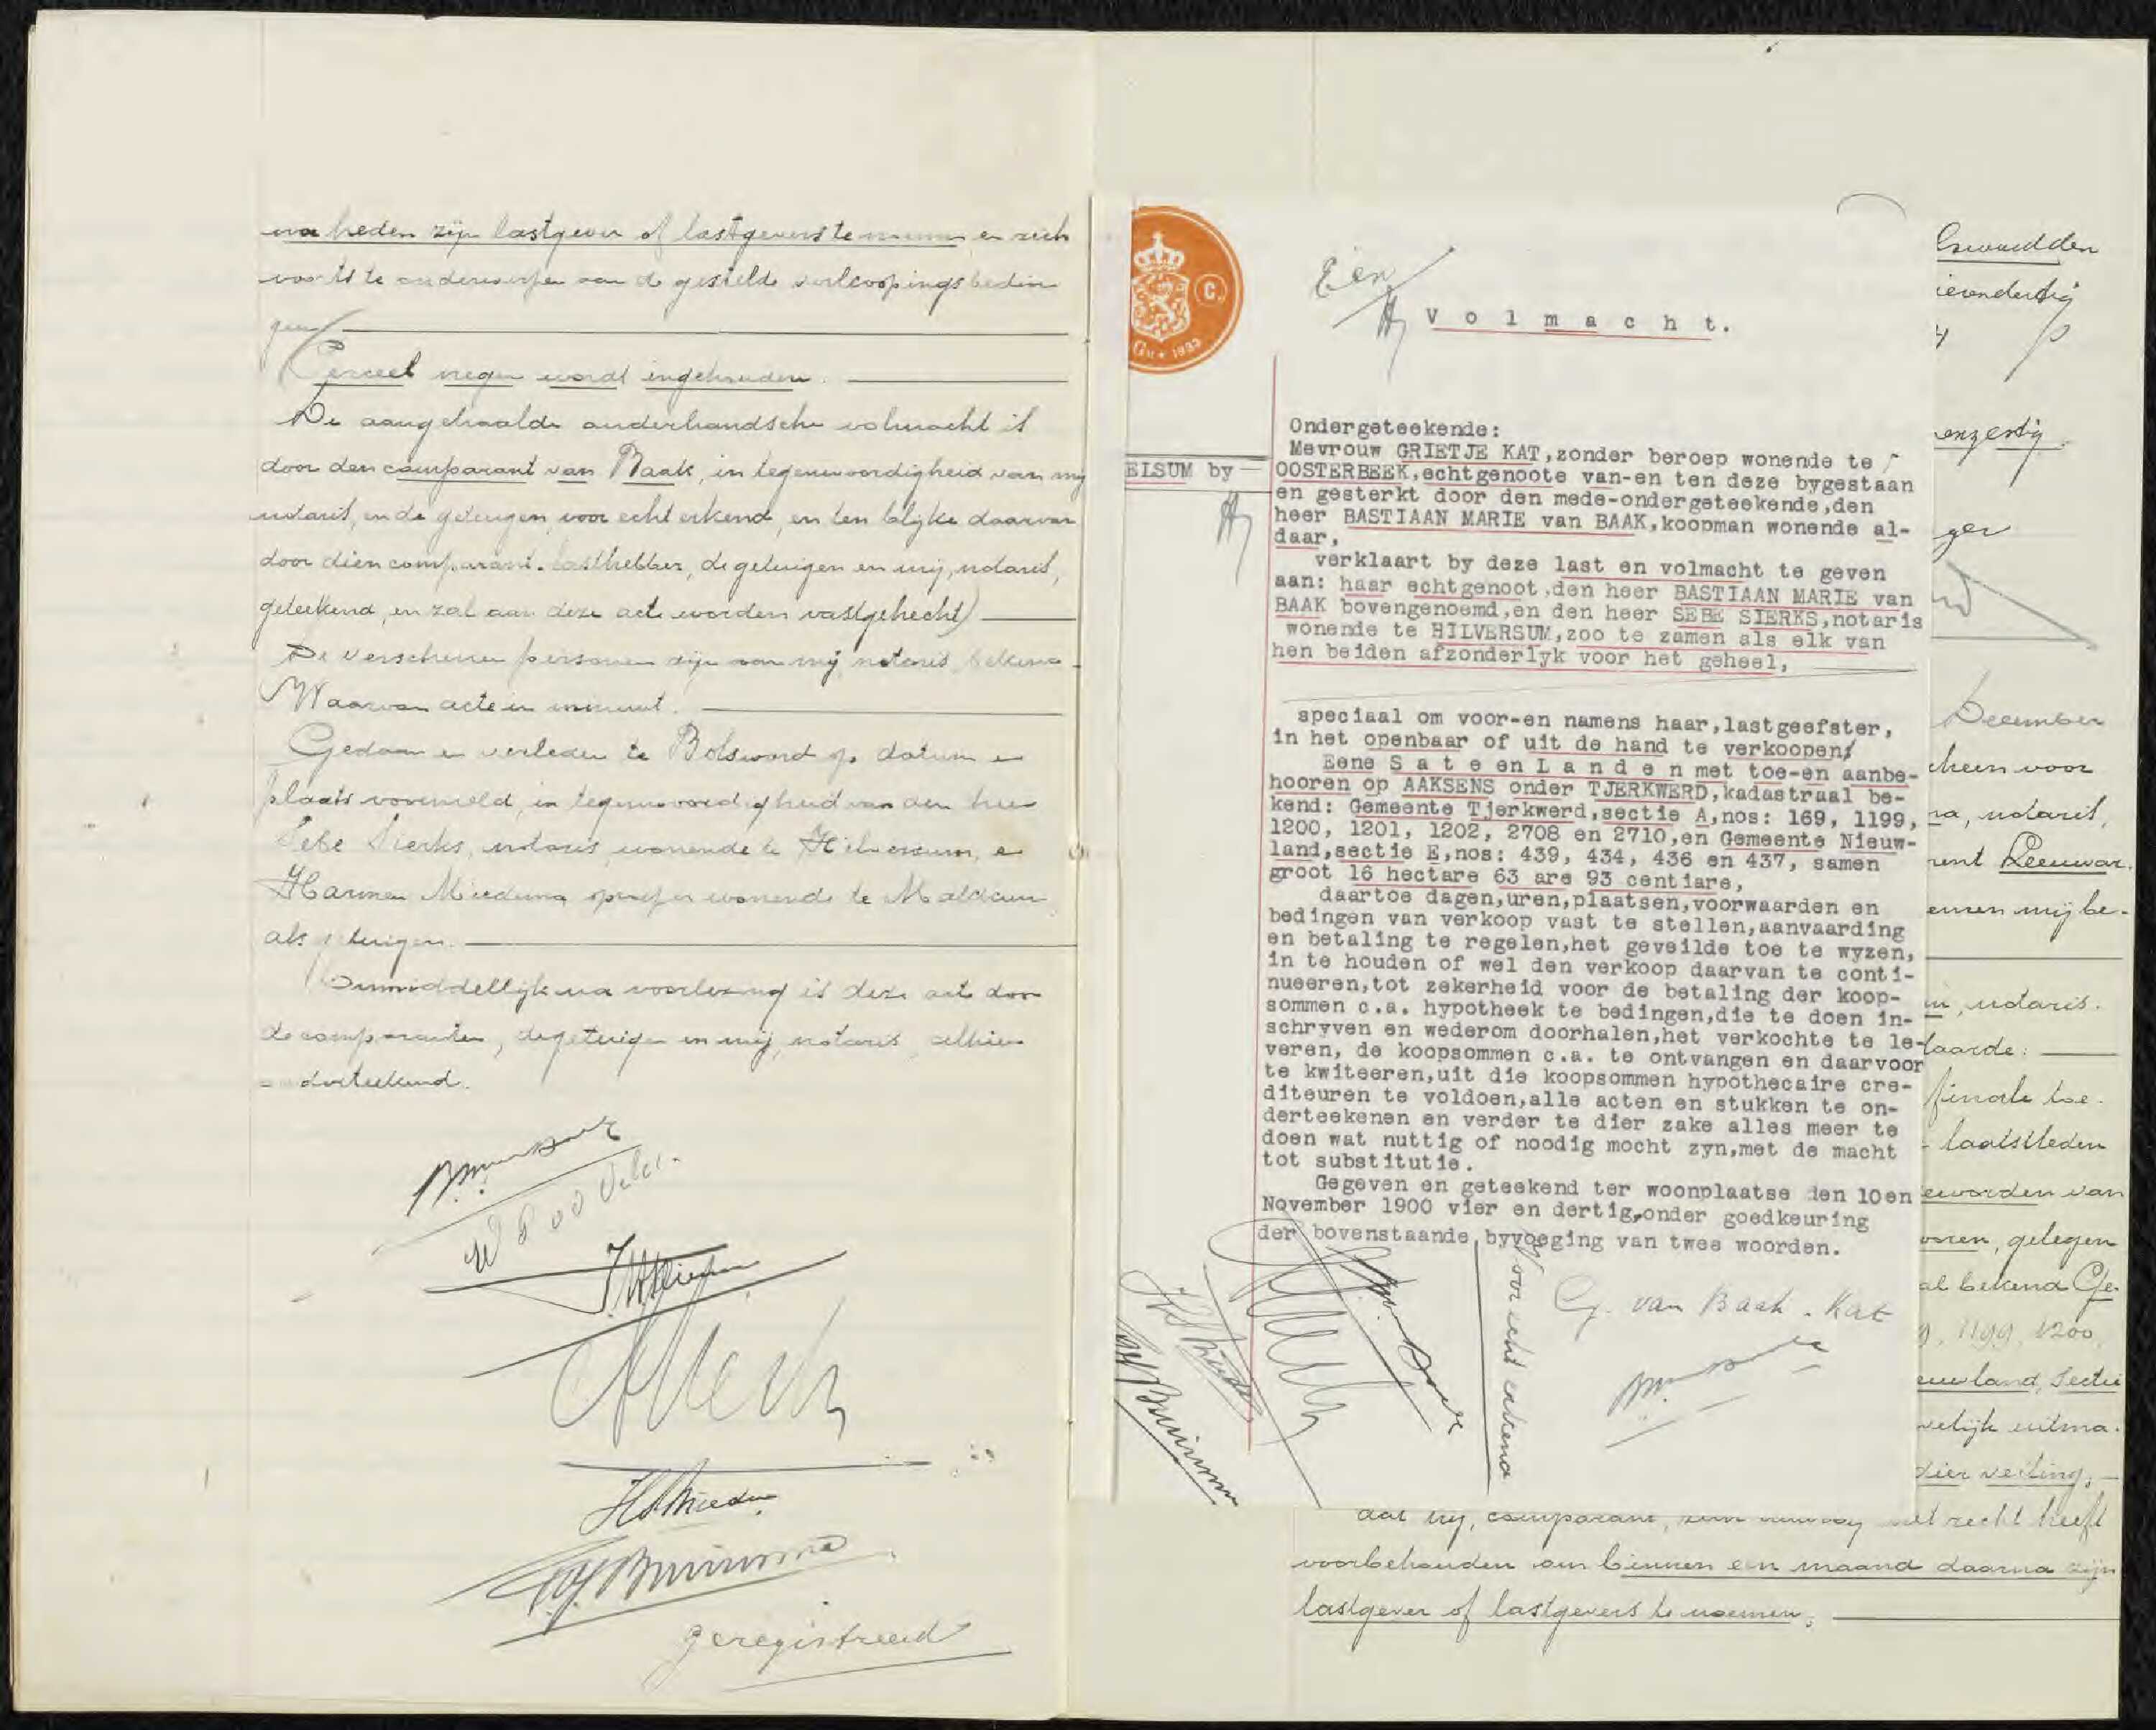 na heden zijn lastgever of lastgevers te noemen en zich
voorts te onderwerpen aan de gestelde verkoopingsbedin
gen
Perceel negen wordt ingehouden.
De aangehaalde onderhandsche volmacht is
door den comparant van Baak, in tegenwoordigheid van mij
notaris, en de getuigen voor echt erkend, en ten blijke daarvan
door dien comparant-lasthebber, de getuigen en mij, notaris,
geteekend, en zal aan deze acte worden vastgehecht)
De verschenen personen zijn aan mij notaris bekend
Waarvan acte in minuut.
Gedaan en verleden te Bolsward op datum en
plaats voormeld, in tegenwoordigheid van den heer
Sebe Sierks, notaris, wonende te Hilversum, en
Harmen Miedema wonende te
als getuigen.
Onmiddellijk na voorlezing is deze acte door
de comparanten, de getuigen en mij, notaris, alhier
onderteekend.
HMiedema
geregistreerd
C.
Gld. 1933
Één
Volmacht.
ELSUM by
Ondergeteekende:
Mevrouw GRIETJE KAT,zonder beroep wonende te
OOSTERBEEK,echtgenoote van-en ten deze bygestaan
en gesterkt door den mede-ondergeteekende,den
heer BASTIAAN MARIE van BAAK,koopman wonende al-
daar,
verklaart by deze last en volmacht te geven
aan: haar echtgenoot,den heer BASTIAAN MARIE van
BAAK bovengenoemd,en den heer SEBE SIERKS,notaris
wonende te HILVERSUM,zoo te zamen als elk van
hen beiden afzonderlyk voor het geheel,
speciaal om voor-en namens haar,lastgeefster,
in het openbaar of uit de hand te verkoopen;
Eene S a t e en L a n d e n met toe-en aanbe-
hooren op AAKSENS onder TJERKWERD,kadastraal be-
kend: Gemeente Tjerkwerd,sectie A,nos: 169, 1199,
1200, 1201, 1202, 2708 en 2710,en Gemeente Nieuw-
land,sectie E,nos: 439, 434, 436 en 437, samen
groot 16 hectare 63 are 93 centiare,
daartoe dagen,uren,plaatsen,voorwaarden en
bedingen van verkoop vast te stellen,aanvaarding
en betaling te regelen,het geveilde toe te wyzen,
in te houden of wel den verkoop daarvan te conti-
nueeren,tot zekerheid voor de betaling der koop-
sommen c.a. hypotheek te bedingen,die te doen in-
schryven en wederom doorhalen,het verkochte te le-
veren, de koopsommen c.a. te ontvangen en daarvoor
te kwiteeren,uit die koopsommen hypothecaire cre-
diteuren te voldoen,alle acten en stukken te on-
derteekenen en verder te dier zake alles meer te
doen wat nuttig of noodig mocht zyn,met de macht
tot substitutie.
Gegeven en geteekend ter woonplaatse den 10en
November 1900 vier en dertig,onder goedkeuring
der bovenstaande byvoeging van twee woorden.
Voor echt erkend
G. van Baak - Kat
ierendertig
enzestig.
ger
December
cheen voor
ra, notaris,
ment Leeuwar.
ennen mij be-
in, notaris.
laarde:
finale toe-
laatstleden
eworden van
oren, gelegen
al bekend Ge-
9, 1199, 1200,
euwland, Sectie
welijk uitma-
dier veiling,
dat hij, comparant, het recht heeft
voorbehouden om binnen een maand daarna zijn
lastgever of lastgevers te noemen;